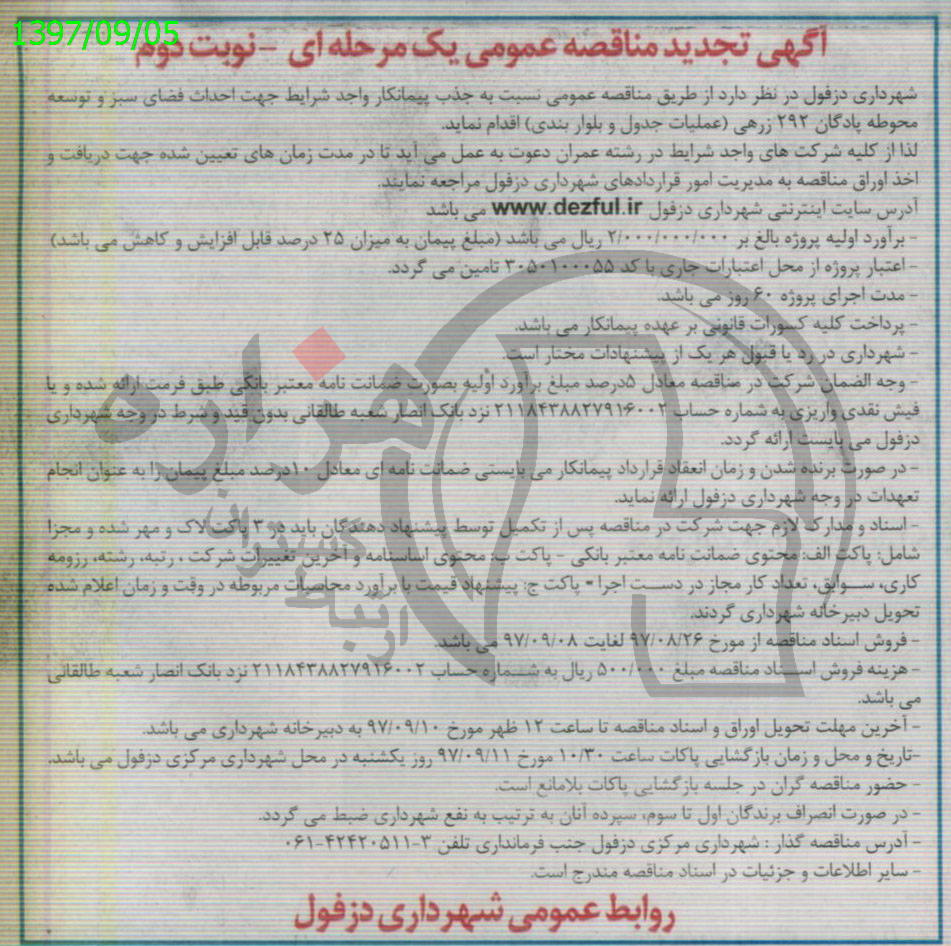 1397/09/05
آگهی تجدید مناقصه عمومی یک مرحله ای - نوبت دوم
شهرداری دزفول در نظر دارد از طریق مناقصه عمومی نسبت به جذب پیمانکار واجد شرایط جهت احداث فضای سبز و توسعه
محوطه پادگان ۲۹۲ زرهی (عملیات جدول و بلوار بندی) اقدام نماید.
لذا از کلیه شرکت های واجد شرایط در رشته عمران دعوت به عمل می آید تا در مدت زمان های تعیین شده جهت دریافت و
اخذ اوراق مناقصه به مدیریت امور قراردادهای شهرداری دزفول مراجعه نمایند.
آدرس سایت اینترنتی شهرداری دزفول www.dezful.ir می باشد
- برآورد اولیه پروژه بالغ بر ۲/۰۰۰/۰۰۰/۰۰۰ ریال می باشد (مبلغ پیمان به میزان ۲۵ درصد قابل افزایش و کاهش می باشد)
- اعتبار پروژه از محل اعتبارات جاری با کد ۳۰۵۰۱۰۰۰۵۵ تامین می گردد.
- مدت اجرای پروژه ۶۰ روز می باشد.
- پرداخت کلیه کسورات قانونی بر عهده پیمانکار می باشد.
- شهرداری در رد یا قبول هر یک از پیشنهادات مختار است.
- وجه الضمان شرکت در مناقصه معادل ۵درصد مبلغ برآورد اولیه بصورت ضمانت نامه معتبر بانکی طبق فرمت ارائه شده و یا
فیش نقدی واریزی به شماره حساب ۲۱۱۸۴۳۸۸۲۷۹۱۶۰۰۲ نزد بانک انصار شعبه طالقانی بدون قید و شرط در وجه شهرداری
دزفول می بایست ارائه گردد.
- در صورت برنده شدن و زمان انعقاد قرارداد پیمانکار می بایستی ضمانت نامه ای معادل ۱۰درصد مبلغ پیمان را به عنوان انجام
تعهدات در وجه شهرداری دزفول ارائه نماید.
- اسناد و مدارک لازم جهت شرکت در مناقصه پس از تکمیل توسط پیشنهاد دهندگان باید در ۳ پاکت لاک و مهر شده و مجزا
شامل: پاکت الف: محتوی ضمانت نامه معتبر بانکی - پاکت ب: محتوی اساسنامه و آخرین تغییرات شرکت ، رتبه، رشته، رزومه
کاری، سوابق، تعداد کار مجاز در دست اجرا - پاکت ج: پیشنهاد قیمت با برآورد محاسبات مربوطه در وقت و زمان اعلام شده
تحویل دبیرخانه شهرداری گردند.
- فروش اسناد مناقصه از مورخ ۹۷/۰۸/۲۶ لغایت ۹۷/۰۹/۰۸ می باشد.
- هزینه فروش اسناد مناقصه مبلغ ۵۰۰/۰۰۰ ریال به شماره حساب ۲۱۱۸۴۳۸۸۲۷۹۱۶۰۰۲ نزد بانک انصار شعبه طالقانی
می باشد.
- آخرین مهلت تحویل اوراق و اسناد مناقصه تا ساعت ۱۲ ظهر مورخ ۹۷/۰۹/۱۰ به دبیرخانه شهرداری می باشد.
-تاریخ و محل و زمان بازگشایی پاکات ساعت ۱۰/۳۰ مورخ ۹۷/۰۹/۱۱ روز یکشنبه در محل شهرداری مرکزی دزفول می باشد.
- حضور مناقصه گران در جلسه بازگشایی پاکات بلامانع است.
- در صورت انصراف برندگان اول تا سوم، سپرده آنان به ترتیب به نفع شهرداری ضبط می گردد.
- آدرس مناقصه گذار : شهرداری مرکزی دزفول جنب فرمانداری تلفن ۳-۴۲۴۲۰۵۱۱-۰۶۱
- سایر اطلاعات و جزئیات در اسناد مناقصه مندرج است.
روابط عمومی شهرداری دزفول
هزاره